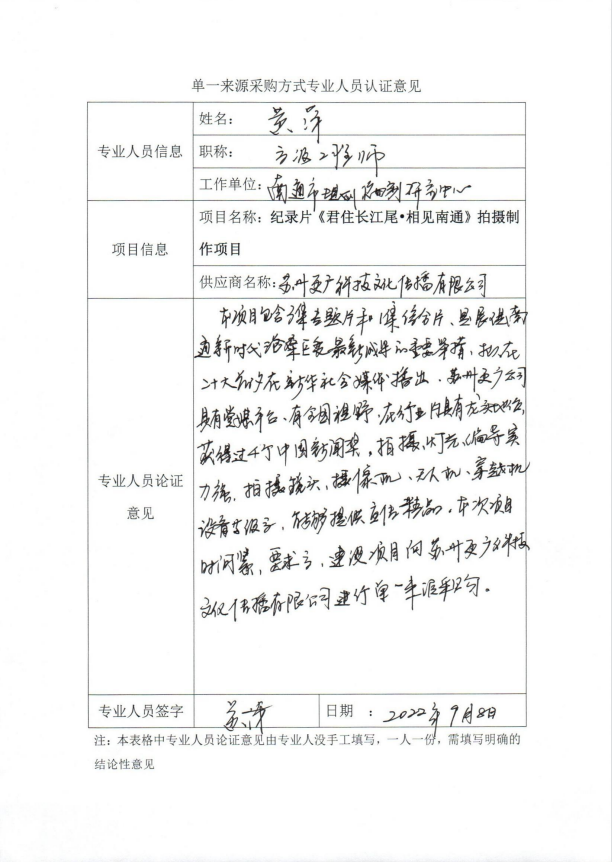 单一来源采购方式专业人员认证意见
专业人员信息
姓名： 黄萍
职称： 高级工程师
工作单位： 南通市规划编制研究中心
项目信息
项目名称：纪录片《君住长江尾•相见南通》拍摄制
作项目
供应商名称：苏州更广科技文化传播有限公司
专业人员论证
意见
本项目包含3集专题片和1集综合片、是展现南
通新时代沧桑巨变最新成果的重要举措，拟在
二十大前夕在新华社全媒体播出。苏州更广公司
具有党媒平台、有全国视野，在行业内具有
获得过4个中国新闻奖，拍摄、灯光、编导实
力强，拍摄镜头、摄像机、无人机、穿越机
设备专级高，能够提供宣传精品。本次项目
时间紧，要求高，建议项目向苏州更广科技
文化传播有限公司进行单一来源采购。
专业人员签字 黄萍 日期 ：2022年9月8日
注：本表格中专业人员论证意见由专业人没手工填写，一人一份，需填写明确的
结论性意见